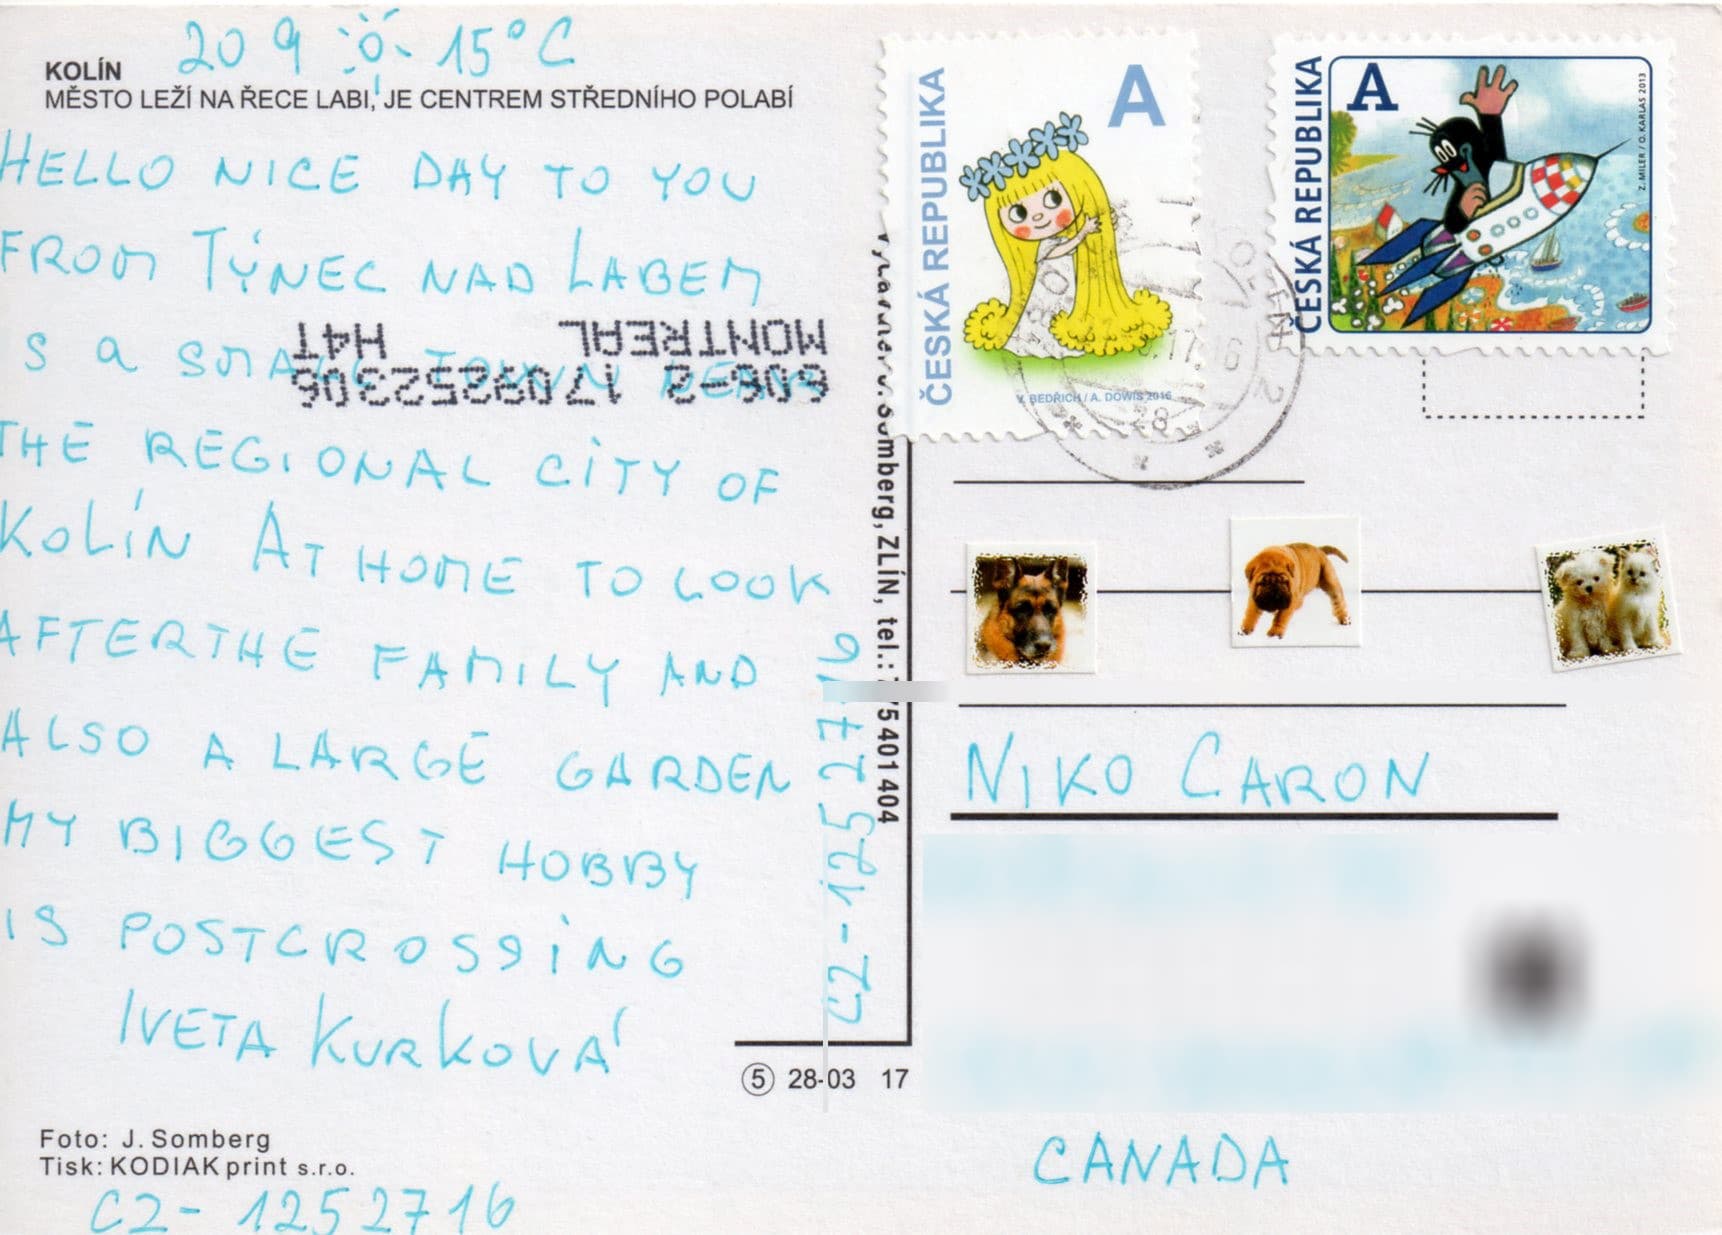 20 9 15°C
KOLÍN
MĚSTO LEŽÍ NA ŘECE LABI, JE CENTREM STŘEDNÍHO POLABÍ
HELLO NICE DAY TO YOU
FROM TÝNEC NAD LABEM
IS A SMALL TOWN NEAR
THE REGIONAL CITY OF
KOLÍN AT HOME TO LOOK
AFTERTHE FAMILY AND
ALSO A LARGE GARDEN
MY BIGGEST HOBBY
IS POSTCROSSING
IVETA KURKOVÁ
606-2 1709252306
MONTREAL H4T
Foto: J. Somberg
Tisk: KODIAK print s.r.o.
CZ- 1252716
CZ-1252716
Somberg, ZLÍN, tel.: 5 401 404
5 28-03 17
ČESKÁ REPUBLIKA
A
V. BEDŘICH / A. DOWIS 2016
ČESKÁ REPUBLIKA
A
Z. MILER / O. KARLAS 2013
NIKO CARON
CANADA